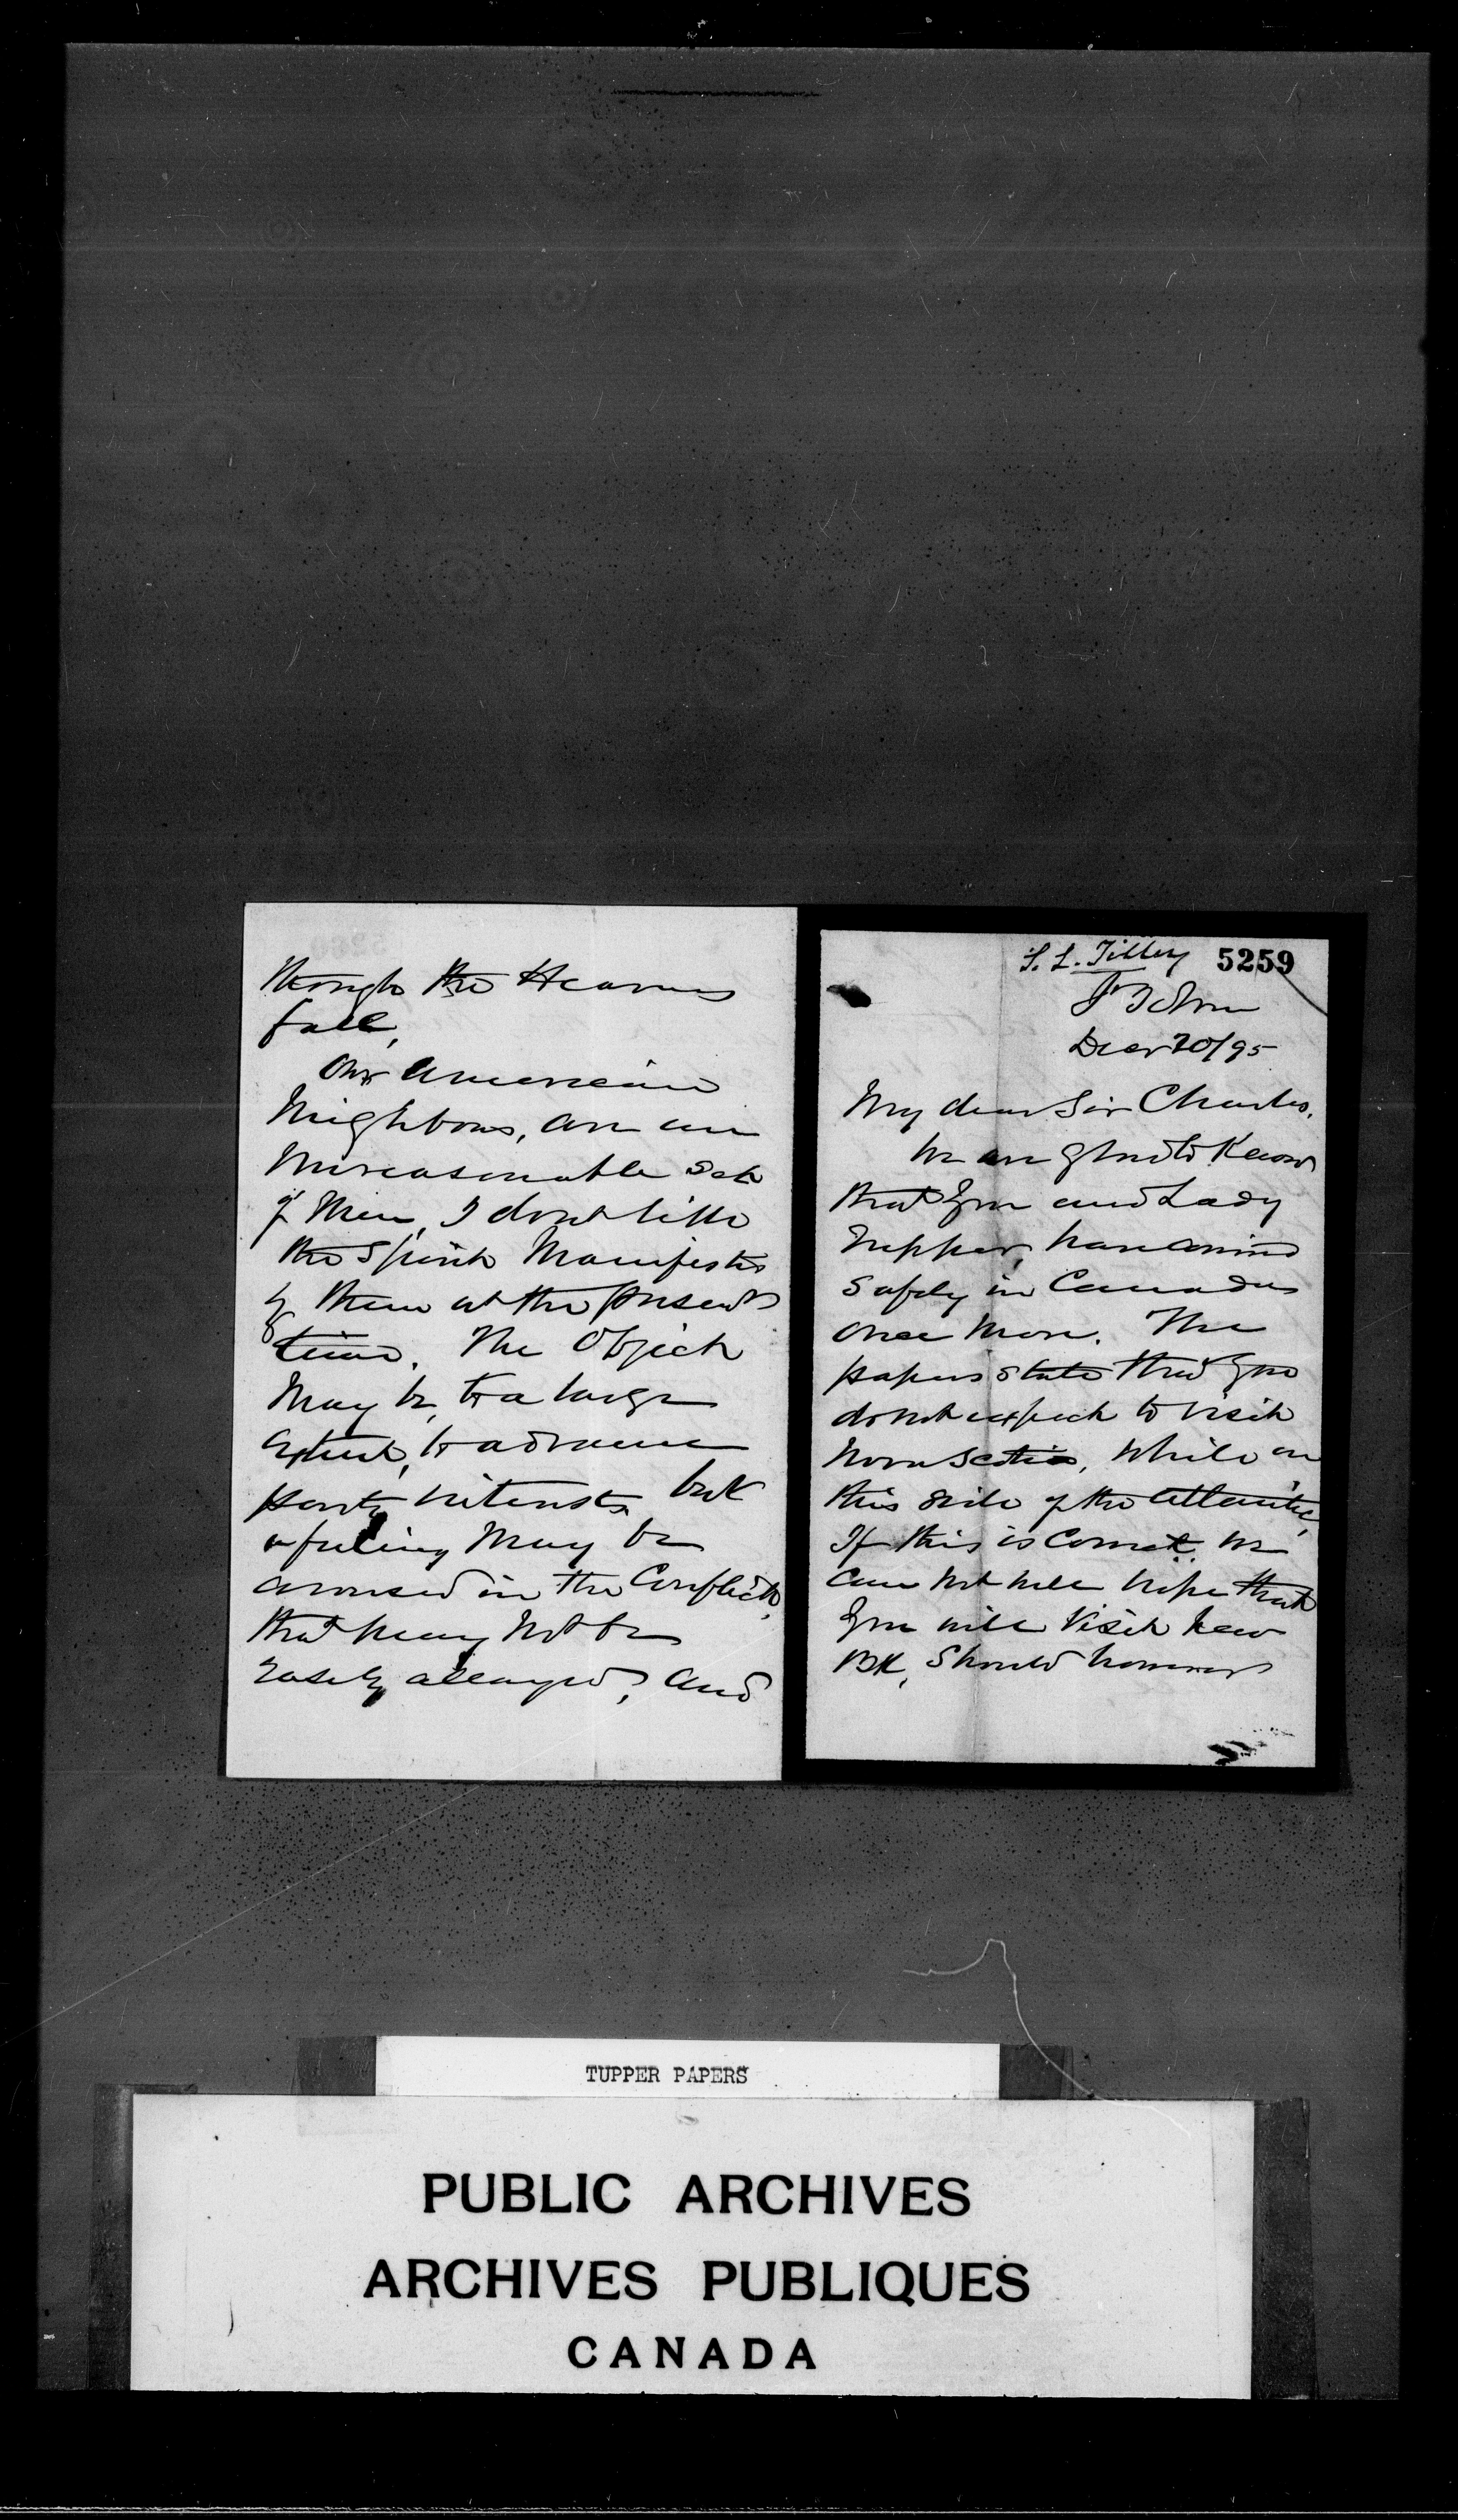 though the Heavens
fall,
Our American
Neighbours, are an
unreasonable set
of Men, I dont like
the Spirit Manifested
by them at the present
time. The Object
May be, to a large
extent, to advance
party interests, but
a feeling May be
aroused in the Conflict,
that may not be
easily allayed, and
S. L. Tilley 5259
St John
Decr 20/95
My dear Sir Charles.
We are glad to Know
that you and Lady
Tupper, have arrived
safely in Canada
once More. The
papers state that you
do not expect to visit
Nova Scotia, while on
this side of the Atlantic,
If this is correct we
can not well hope that
you will Visit New
BK, Should however
TUPPER PAPERS
PUBLIC ARCHIVES
ARCHIVES PUBLIQUES
CANADA